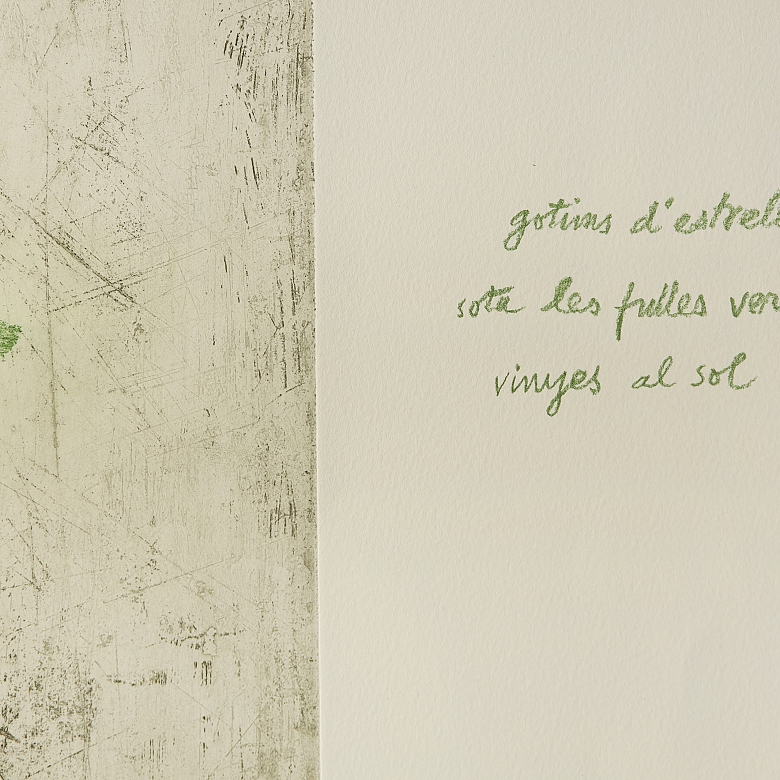 gotims d'estrel
sota les fulles ver
vinyes al sol